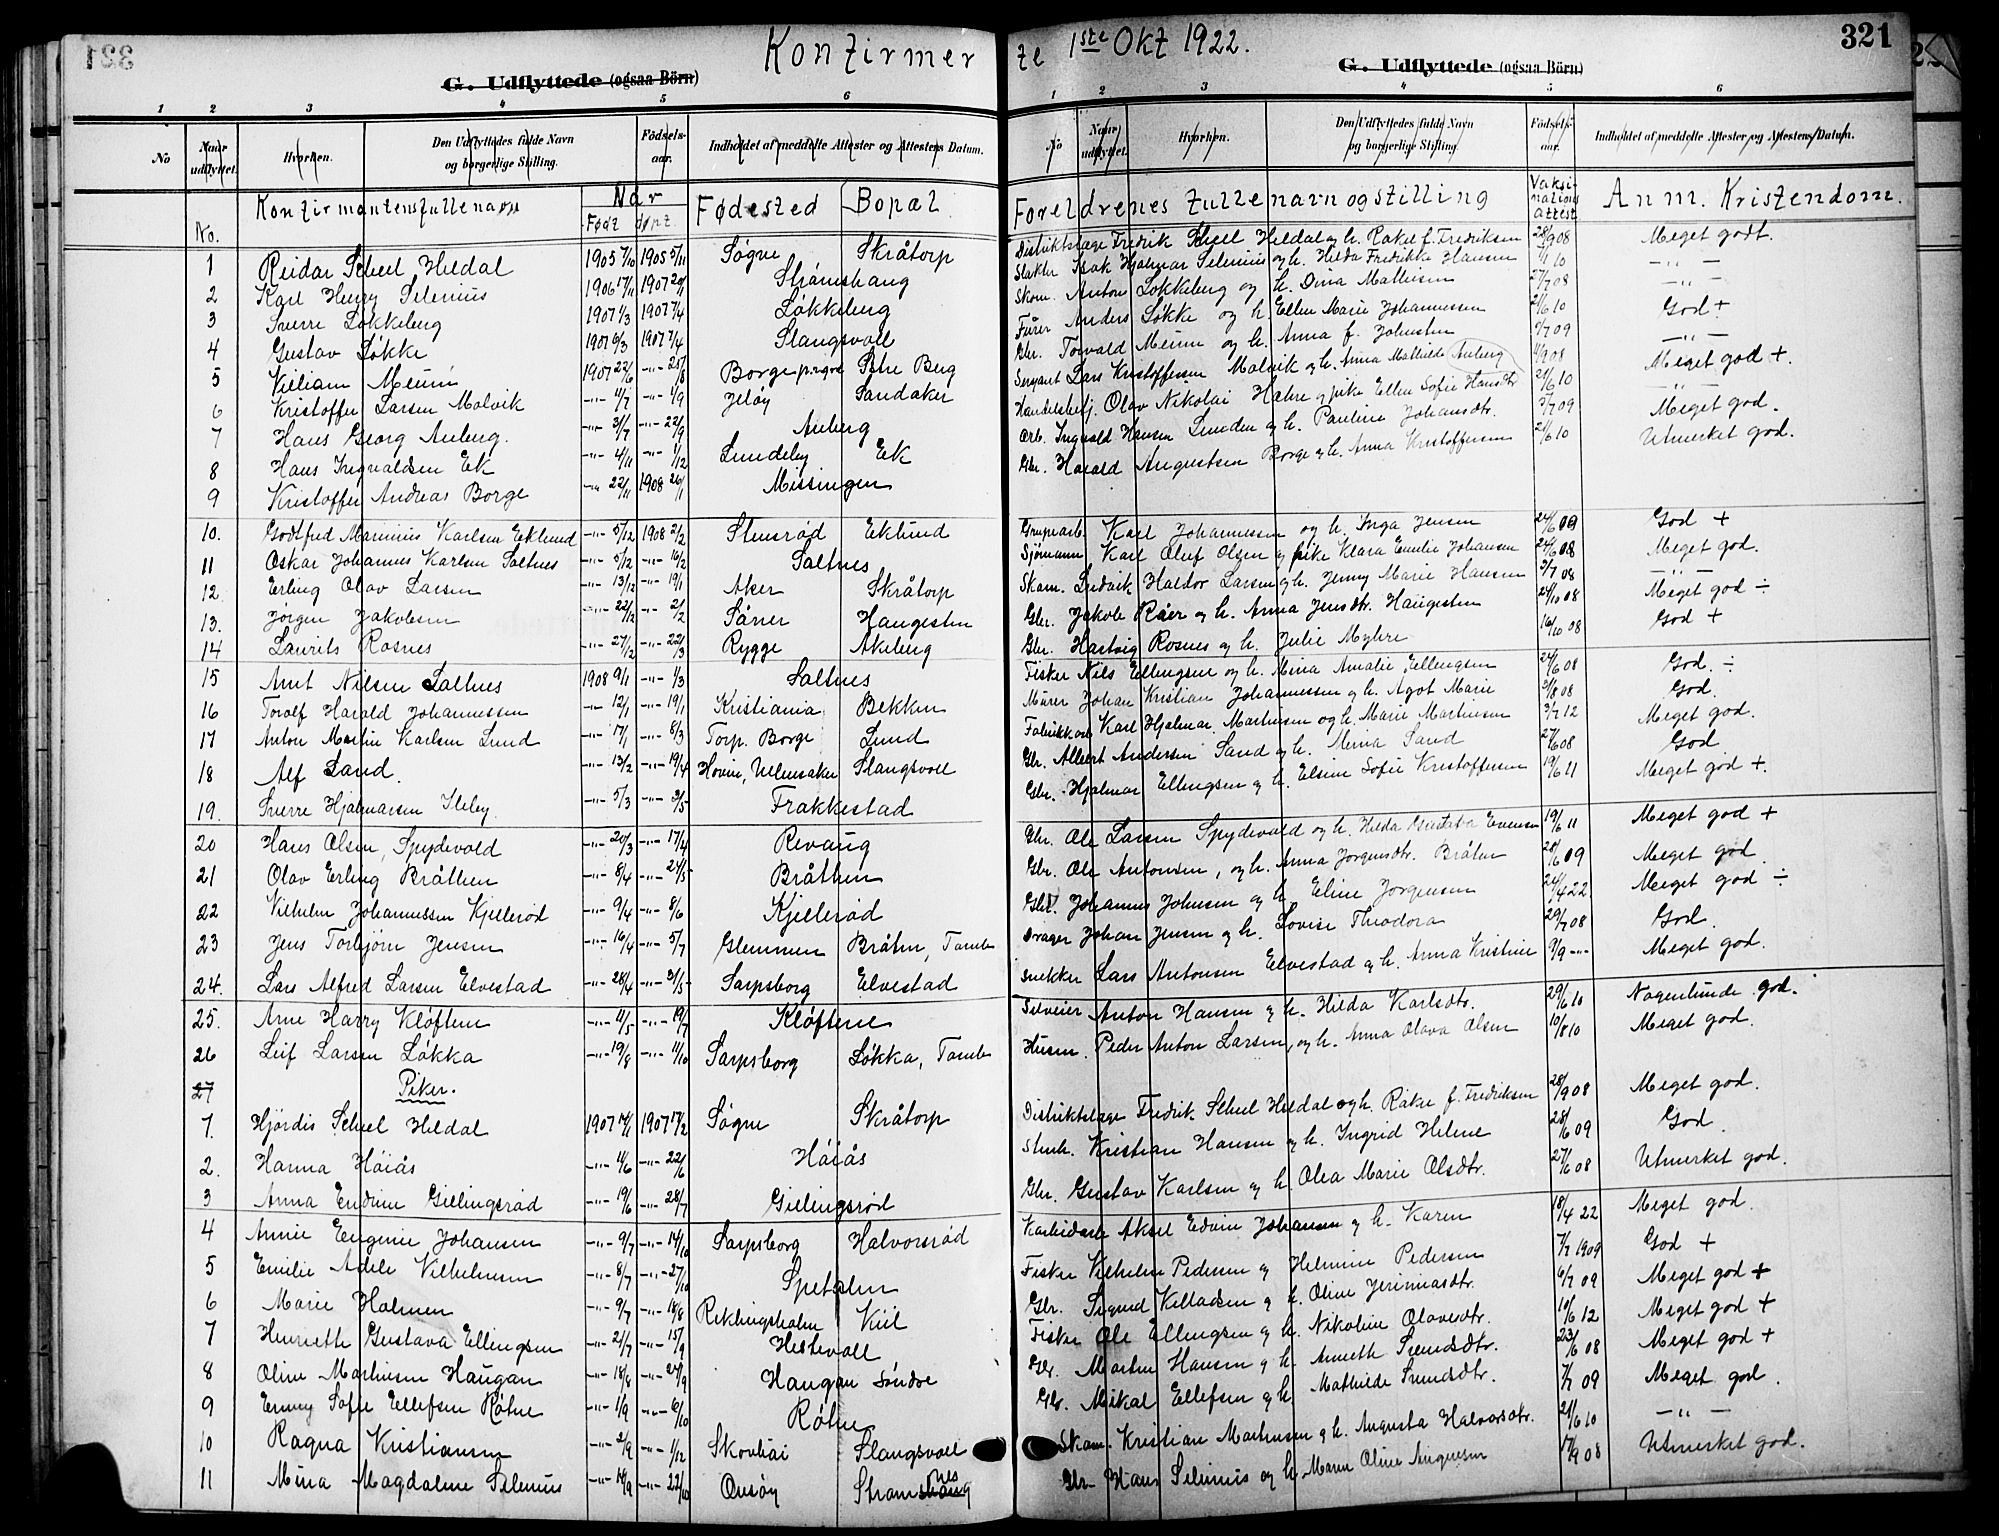 321
Konfirmer
te 1ste Okt 1922.
321
G. Udflyttede (ogsaa Börn)
G. Udflyttede (ogsaa Börn)
1 2 3 4 5 6
1 2 3 4 5 6
No Naar udflyttet. Hvorhen. Den Udflyttedes fulde Navn og borgerlige Stilling. Födsels-aar. Indholdet af meddelte Attester og Attestens Datum.
No Naar udflyttet. Hvorhen. Den Udflyttedes fulde Navn og borgerlige Stilling. Födsels-aar. Indholdet af meddelte Attester og Attestens Datum.
No. Konfirmantens fulle navn Når Født døpt. Fødested Bopæl.
Foreldrenes fulle navn og stilling Vaksinations attest Anm. Kristendom.
1 Reidar Scheel Heldal 1905 7/10 1905 5/11 Søgne Skråtorp
2 Karl Henry Selenius 1906 17/11 1907 20/1 Strømshaug
3 Sverre Løkkeberg 1907 1/3 1907 7/4 Løkkeberg
4 Gustav Løkke 1907 6/3 1907 7/4 Slangsvoll
5 William Meum 1907 22/6 -"- 25/8 Borge prgr. Østre Berg
6 Kristoffer Larsen Molvik -"- 4/7 -"- 1/9 Jeløy Sandaker
7 Hans Georg Auberg. -"- 3/7 -"- 22/9 Auberg
8 Hans Ingvaldsen Ek -"- 4/11 -"- 1/12 Lundeby Ek
9 Kristoffer Andreas Borge -"- 22/11 1908 26/1 Missingen
10. Godtfred Marinius Karlsen Eklund -"- 5/12 1908 2/2 Stensrød Eklund
11 Oskar Johannes Karlsen Saltnes -"- 5/12 -"- 16/2 Saltnes
12. Erling Olav Larsen -"- 13/12 -"- 19/1 Aker Skråtorp
13. Jørgen Jakobsen -"- 22/12 -"- 2/2 Såner Haugesten
14 Laurits Rosnes -"- 27/12 -"- 22/3 Rygge Akeberg
15 Arnt Nilsen Saltnes 1908 9/1 -"- 1/3 Saltnes
16 Torolf Harald Johannessen -"- 12/1 -"- 19/1 Kristiania Bekken
17 Anton Martin Karlsen Lund -"- 17/1 -"- 8/3 Torp. Borge Lund
18 Alf Sand. -"- 13/2 -"- 19/4 Hovin, Ullensaker Slangsvoll
19. Sverre Hjalmarsen Ileby -"- 5/3 -"- 3/5 Frakkestad
20 Hans Olsen, Spydevold -"- 20/3 -"- 17/4 Revaug
21 Olav Erling Bråthen -"- 8/4 -"- 24/5 Bråthen
22 Vilhelm Johannessen Kjellerød -"- 9/4 -"- 8/6 Kjellerød
23 Jens Torbjørn Jensen -"- 16/4 -"- 5/7 Glemmen Bråten, Tomb
24. Lars Alfred Larsen Elvestad -"- 28/4 -"- 31/5 Sarpsborg Elvestad
25. Arne Harry Kløftene -"- 4/5 -"- 19/7 Kløftene
26 Leif Larsen Løkka -"- 19/8 -"- 11/10 Sarpsborg Løkka, Tomb
27 Piker.
1. Hjördis Scheel Heldal 1907 14/1 1907 17/2 Søgne Skråtorp
2. Hanna Høiås -"- 4/6 -"- 22/6 Høiås
3 Anna Gielingsrød -"- 19/6 -"- 28/7 Gielingsrød
4 Annie Eugenie Johansen -"- 9/7 -"- 14/10 Sarpsborg Halvorsrød
5 Emilie Adele Vilhelmsen -"- 8/7 -"- 27/10 Spetalen
6 Marie Holmen -"- 9/7 -"- 18/8 Reklingsholm Kiil
7 Henriette Gustava Ellingsen -"- 21/7 -"- 15/9 Hestevoll
8 Oline Martinsen Haugan -"- 18/8 -"- 24/9 Haugan Søndre
9 Emmy Sofie Ellefsen Røtne -"- 1/9 -"- 6/10 Røtne
10 Ragna Kristiansen -"- 2/9 -"- 1/12 Skovliai Slangsvoll
11 Mina Magdalene Selenius -"- 14/9 -"- 22/10 Onsøy Strømsnes
Distriktslæge Fredrik Scheel Heldal og h. Rakel f. Fredriksen 28/9 08 Meget godt.
Slakter Isak Hjalmar Selenius og h. Hilda Fredrikke Hansen 7/1 10 -"-
Skom. Anton Løkkeberg og h. Dina Mathisen 27/7 08 -"-
Fürer Anders Løkke og h. Ellen Marie Johannessen 21/6 10 God +
Gbr. Torvald Meum og h. Anna f. Johnsten 9/7 09 -"-
Sergeant Lars Kristoffersen Molvik og h. Anna Mathilde Auberg 4/9 08 Meget god +.
Handelsbetj. Olav Nikolai Høhre og pike Ellen Sofie Hansdtr 21/6 10 -"-
Arb. Ingvald Hansen Lunden og h. Pauline Johansdtr. 2/7 09 Meget god.
Gbr. Harald Augustsen Borge og h. Anna Kristoffersen 21/6 10 Utmerket god.
Grupearb. Karl Johannessen og h. Inga Jensen 24/6 09 God +
Sjømann Karl Oluf Olsen og pike Klara Emilie Johansen 24/6 08 Meget god.
Skom. Fredrik Haldor Larsen og h. Jenny Marie Hansen 3/7 08 -"-
Gbr. Jakob Røer og h. Anna Jensdtr. Haugesten 24/10 08 Meget god ÷
Gbr. Hartvig Rosnes og h. Julie Myhre 16/10 08 God +
Fisker Nils Ellingsen og h. Mina Amalie Ellingsen 24/6 08 God. ÷
Mürer Johan Kristian Johannessen og h. Agot Marie 3/8 08 God.
Fabrikkarb. Karl Hjalmar Martinsen og h. Marie Martinsen 3/7 12 Meget god.
Gbr. Albert Andersen Sand og h. Mina Sand 27/6 08 God
Gbr. Hjalmar Ellingsen og h. Elsine Sofie Kristoffersen 19/6 11 Meget god +.
Gbr. Ole Larsen Spydevold og h. Hilda Gustava Evensen 19/6 11 Meget god +
Gbr. Ole Antonsen, og h. Anna Jørgensdtr. Bråten 28/6 09 Meget god.
Gbr. Johannes Johnsen og h. Eline Jørgensen 24/4 22 Meget god ÷
Drager Johan Jensen og h. Lovise Theodora 29/7 08 God.
Snekker Lars Antonsen Elvestad og h. Anna Kristine 9/9 -"- Meget god.
Anton Hansen og h. Hilda Karlsdtr. 29/6 10 Nogenlunde god.
Husm. Peder Anton Larsen, og h. Anna Olava Olsen 10/8 10 Meget god.
Distriktslæge Fredrik Scheel Heldal og h. Rakel f. Fredriksen 28/9 08 Meget god.
Kristian Hansen og h. Ingrid Helene 28/6 09 God.
Gbr. Gustav Karlsen og h. Olea Marie Olsdtr. 27/6 08 Utmerket god.
Aksel Edvin Johansen og h. Karen 18/4 22 Meget god.
Fisker Vilhelm Pedersen og Helmine Pedersen 7/7 1909 God +
Gbr. Sigurd Villadsen og h. Oline Jerimiasdtr. 6/7 09 Meget god +
Fisker Ole Ellingsen og h. Nikoline Olavesdtr. 10/6 12 Meget god +
Gbr. Martin Hansen og h. Annette Svendsdtr. 23/6 08 Meget god +
Gbr. Mikal Ellefsen og h. Mathilde Svendsdtr. 7/7 09 Meget god.
Skom. Kristian Martinsen og h. Augusta Halvorsdtr. 21/6 10 -"-
Gbr. Hans Selenius og h. Maren Oline 17/9 08 Utmerket god.